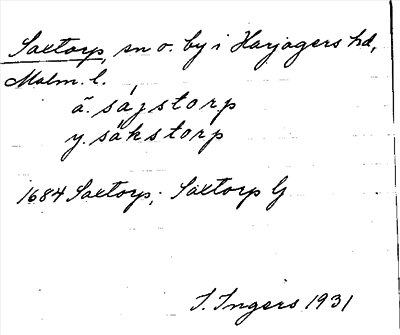 Saxtorp, sn o. by i Harjagers hd,
Malm. l.
ä. ságstorp
y. såkstorp
1684 Saxtorp; Saxtorp G
I. Ingers 1931